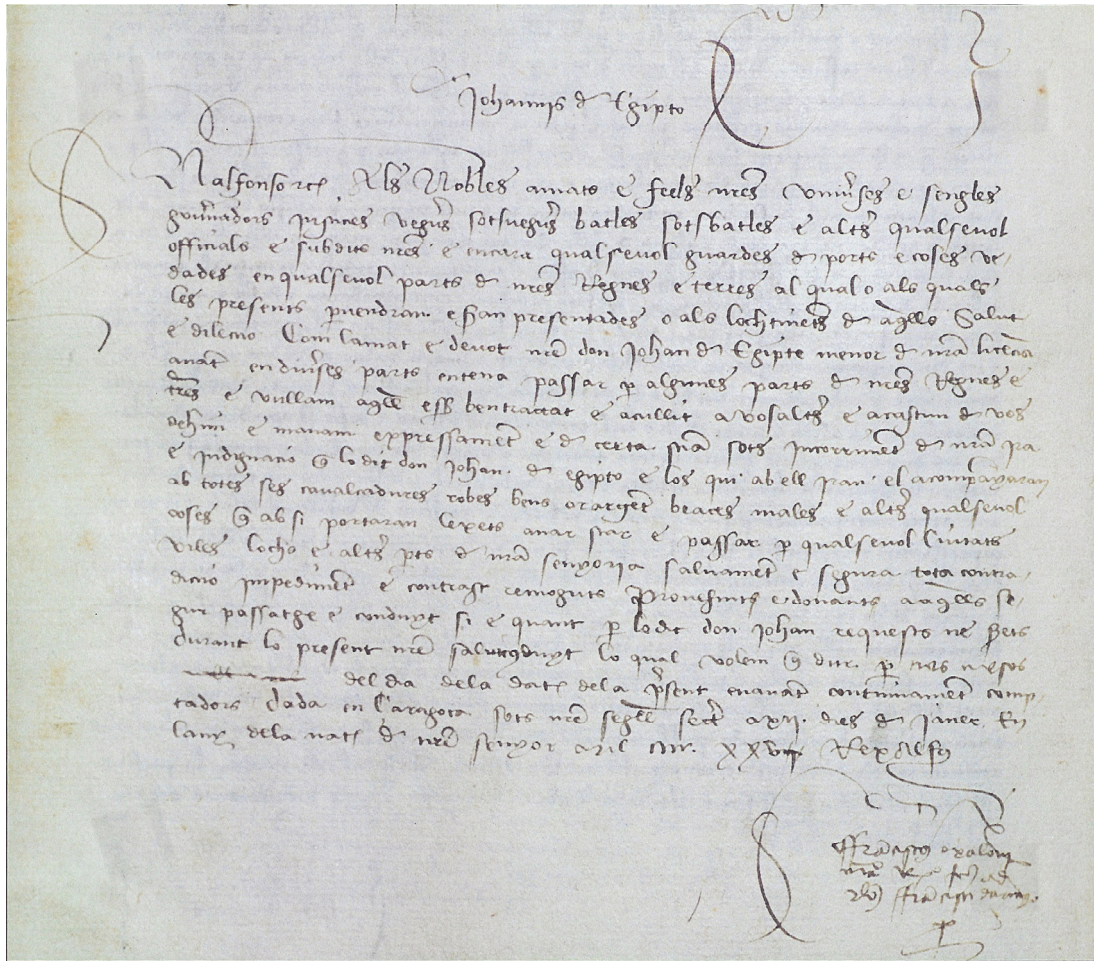 Johannis d Egipto
N alfonso etc Als Nobles amats e feels nres univses e sengles
govnadors justices vegus sotsvegus batles sotsbatles e alts qualsevol
officials e subdits nres e encara qualsevol guardes d ports e coses ve-
dades en qualsevol parts d nres Regnes e terres al qual o als quals
les presents pvendran e seran presentades o als lochtinets d aqlls Salut
e dileccio Com lamat e devot nre don Johan d Egipte menor d nra licencia
anat en divses parts entena passar p algunes parts d nres Regnes e
tres e vullam aqll esser ben tractat e acullit a vosalts e a cascun d vos
dehim e manam expressamet e d certa sciecia sots incorrimet d nra ira
e indignacio q lo dit don Johan d egipto e los qui ab ell iran e l acompanyaran
ab totes ses cavalcadures robes bens or arget biaces males e alts qualsevol
coses q ab si portaran lexets anar star e passar p qualsevol Ciutats
viles lochs e alts pts d nra senyoria salvament e segura tota contra-
diccio impedimet e contrast remoguts Provehints e donants a aqlls se-
gur passatge e conduyt si e quant p lo dit don Johan requests ne serets
durant lo present nre salvcoduyt lo qual volem q dur p tres mesos
del dia dela dat dela psent enavat continuament comp-
tadors Dada en Caragoca sots nre segell secret a xii dies d Janer En
lany dela nat d nre senyor Mil cccc xxv Rex Alfo
Francisco